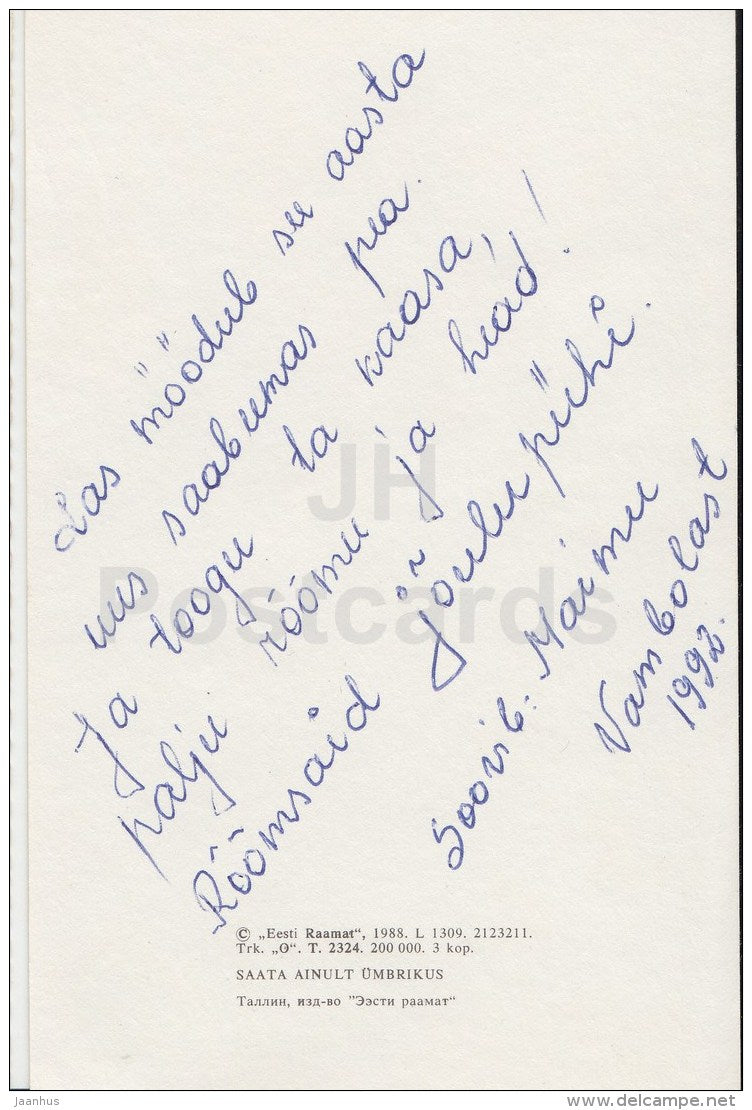 Las möödub see aasta
uus saabumas pea.
Ja toogu ta kaasa,
palju rõõmu ja head!
Rõõmsaid jõulupühi.
Soovib: Maimu
Vambolast
1992.
JH
Postcards
© „Eesti Raamat“, 1988. L 1309. 2123211.
Trk. „O“. T. 2324. 200 000. 3 kop.
SAATA AINULT ÜMBRIKUS
Таллин, изд-во "Ээсти раамат"
Jaanhus
www.delcampe.net